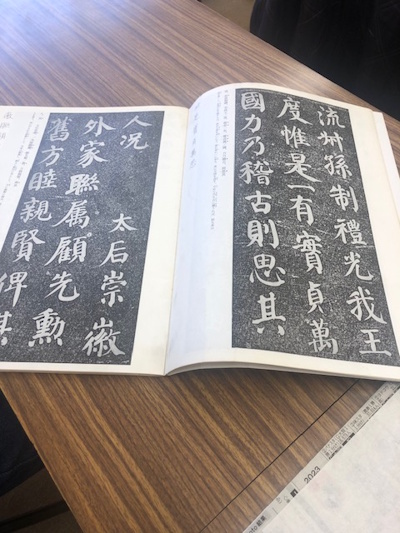 流叔孫制禮光我王
度惟是一有實貞萬
國力乃稽古則思其
人況 太后崇徽
外家聯属顧先勳
舊方睦親賢俾其
2023